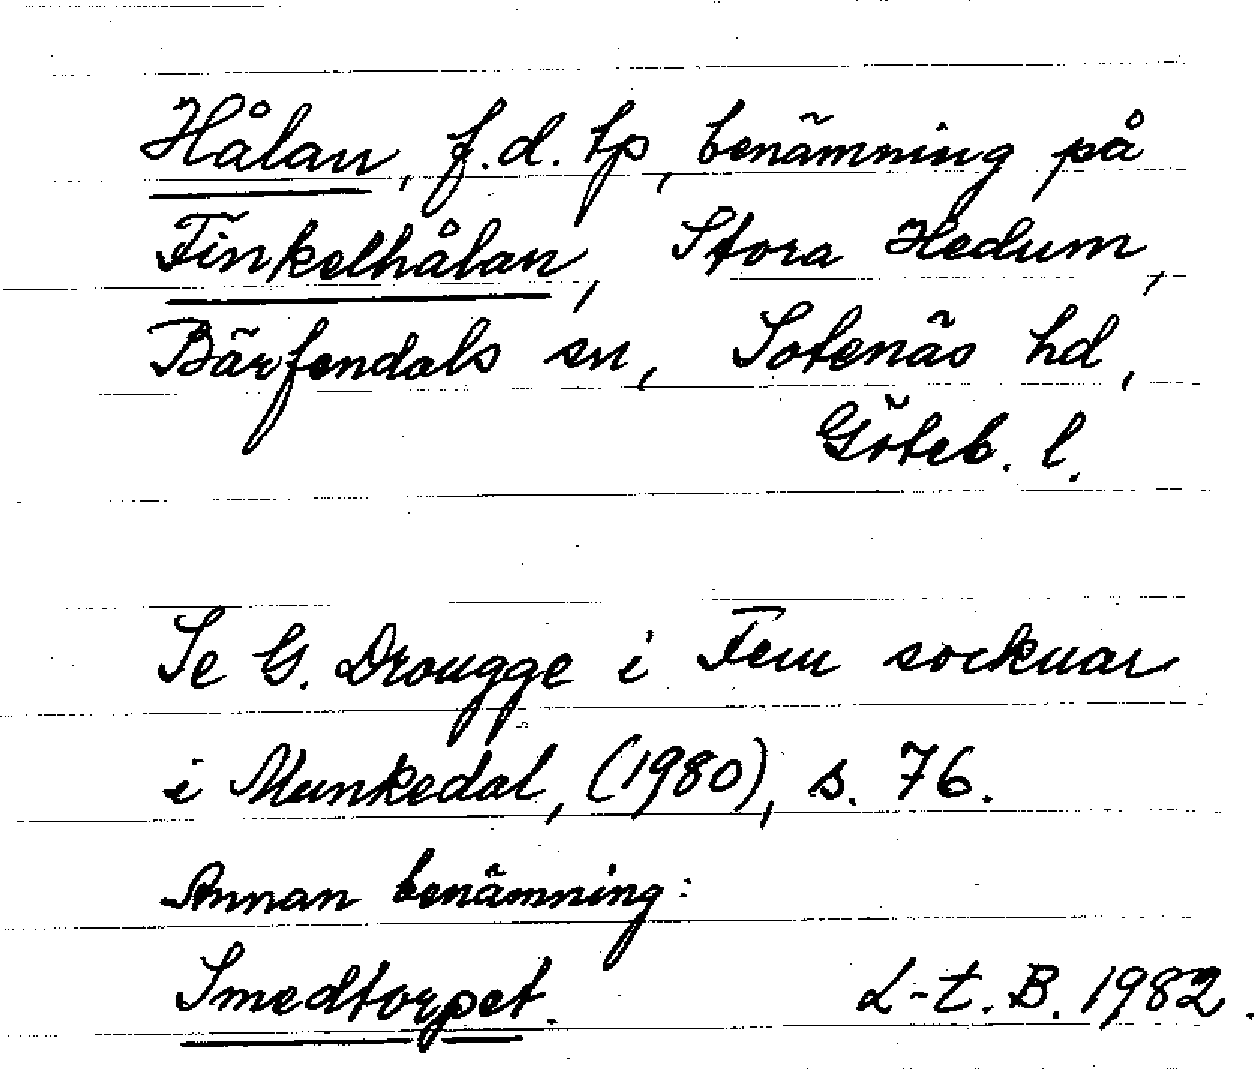 Hålan, f.d. tp, benämning på
Finkelhålan, Stora Hedum,
Bärfendals sn, Sotenäs hd,
Göteb. l.
Se G. Drougge i Fem socknar
i Munkedal, (1980), s. 76.
Annan benämning:
Smedtorpet. L-t. B. 1982.